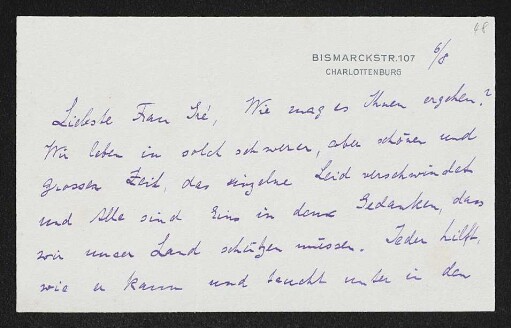 48
BISMARCKSTR. 107
CHARLOTTENBURG
6/8
Liebste Frau Iré, Wie mag es Ihnen ergehen?
Wir leben in solch schwerer, aber schönen und
grossen Zeit, das einzelne Leid verschwindet
und Alle sind Eins in dem Gedanken, dass
wir unser Land schützen müssen. Jeder hilft,
wie er kann und taucht unter in den